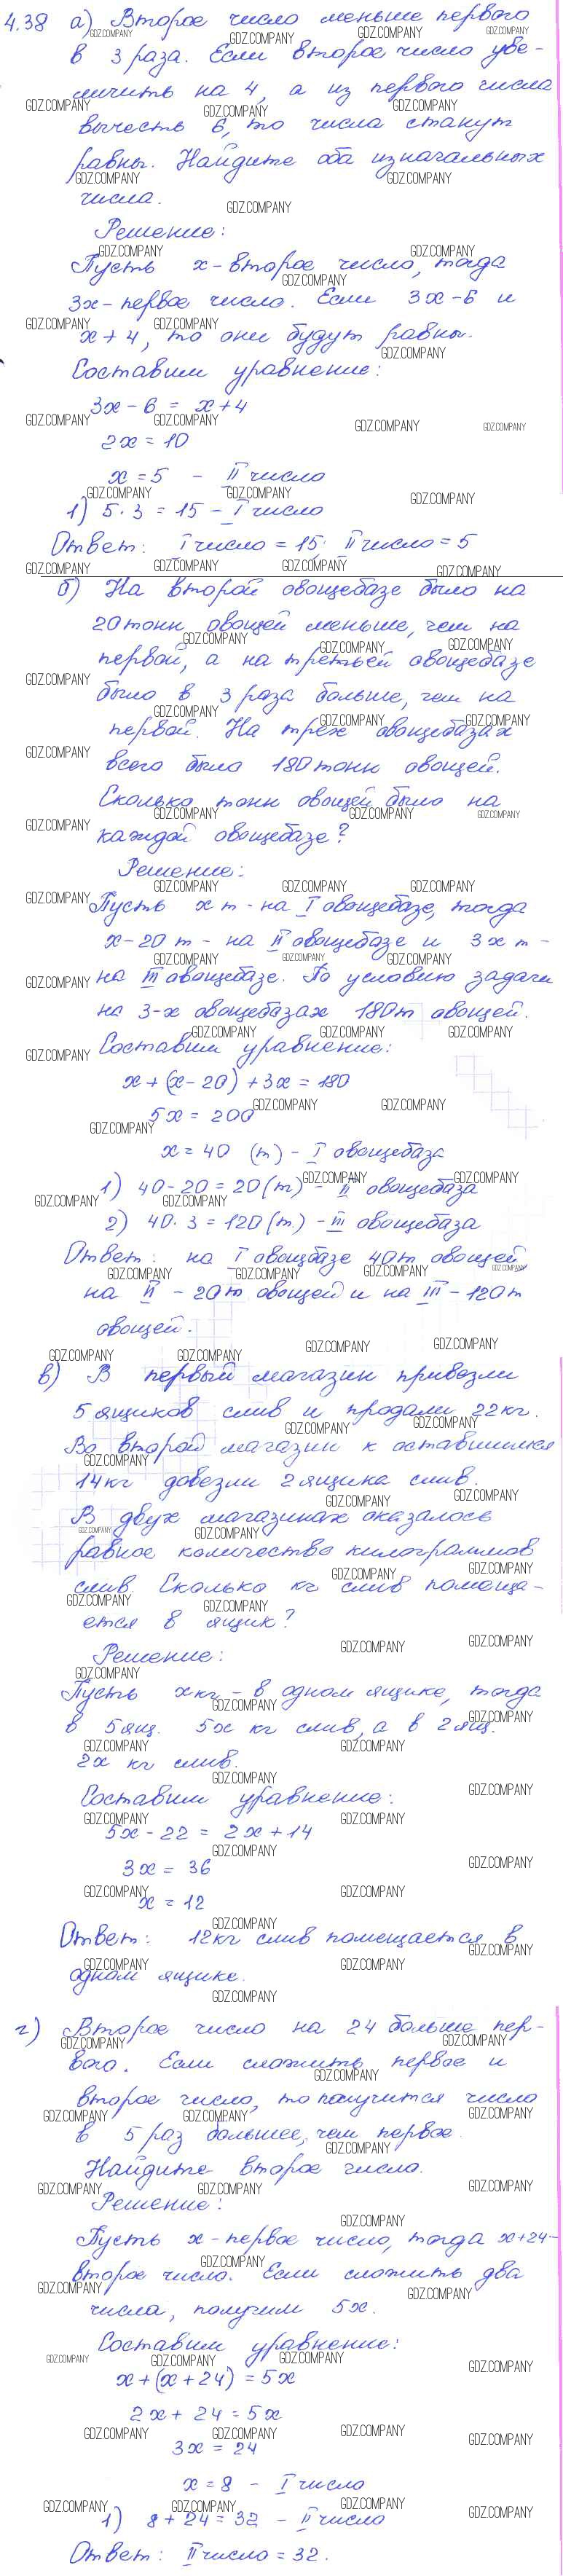 4.38 а) Второе число меньше первого
в 3 раза. Если второе число уве-
личить на 4, а из первого числа
вычесть 6, то числа станут
равны. Найдите оба изначальных
числа.
Решение:
Пусть х - второе число, тогда
3х - первое число. Если 3х - 6 и
х + 4, то они будут равны.
Составим уравнение:
3х - 6 = х + 4
2х = 10
х = 5 - II число
1) 5 · 3 = 15 - I число
Ответ: I число = 15; II число = 5
б) На второй овощебазе было на
20 тонн овощей меньше, чем на
первой, а на третьей овощебазе
было в 3 раза больше, чем на
первой. На трёх овощебазах
всего было 180 тонн овощей.
Сколько тонн овощей было на
каждой овощебазе?
Решение:
Пусть х т - на I овощебазе, тогда
х - 20 т - на II овощебазе и 3х т -
на III овощебазе. По условию задачи
на 3-х овощебазах 180 т овощей.
Составим уравнение:
х + (х - 20) + 3х = 180
5х = 200
х = 40 (т) - I овощебаза
1) 40 - 20 = 20 (т) - II овощебаза
2) 40 · 3 = 120 (т) - III овощебаза
Ответ: на I овощбазе 40 т овощей,
на II - 20 т овощей и на III - 120 т
овощей.
в) В первый магазин привезли
5 ящиков слив и продали 22 кг.
Во второй магазин к оставшимся
14 кг довезли 2 ящика слив.
В двух магазинах оказалось
равное количество килограммов
слив. Сколько кг слив помеща-
ется в ящик?
Решение:
Пусть х кг - в одном ящике, тогда
в 5 ящ. 5х кг слив, а в 2 ящ.
2х кг слив.
Составим уравнение:
5х - 22 = 2х + 14
3х = 36
х = 12
Ответ: 12 кг слив помещается в
одном ящике.
г) Второе число на 24 больше пер-
вого. Если сложить первое и
второе число, то получится число
в 5 раз большее, чем первое.
Найдите второе число.
Решение:
Пусть х - первое число, тогда х + 24 -
второе число. Если сложить два
числа, получим 5х.
Составим уравнение:
х + (х + 24) = 5х
2х + 24 = 5х
3х = 24
х = 8 - I число
1) 8 + 24 = 32 - II число
Ответ: II число = 32.